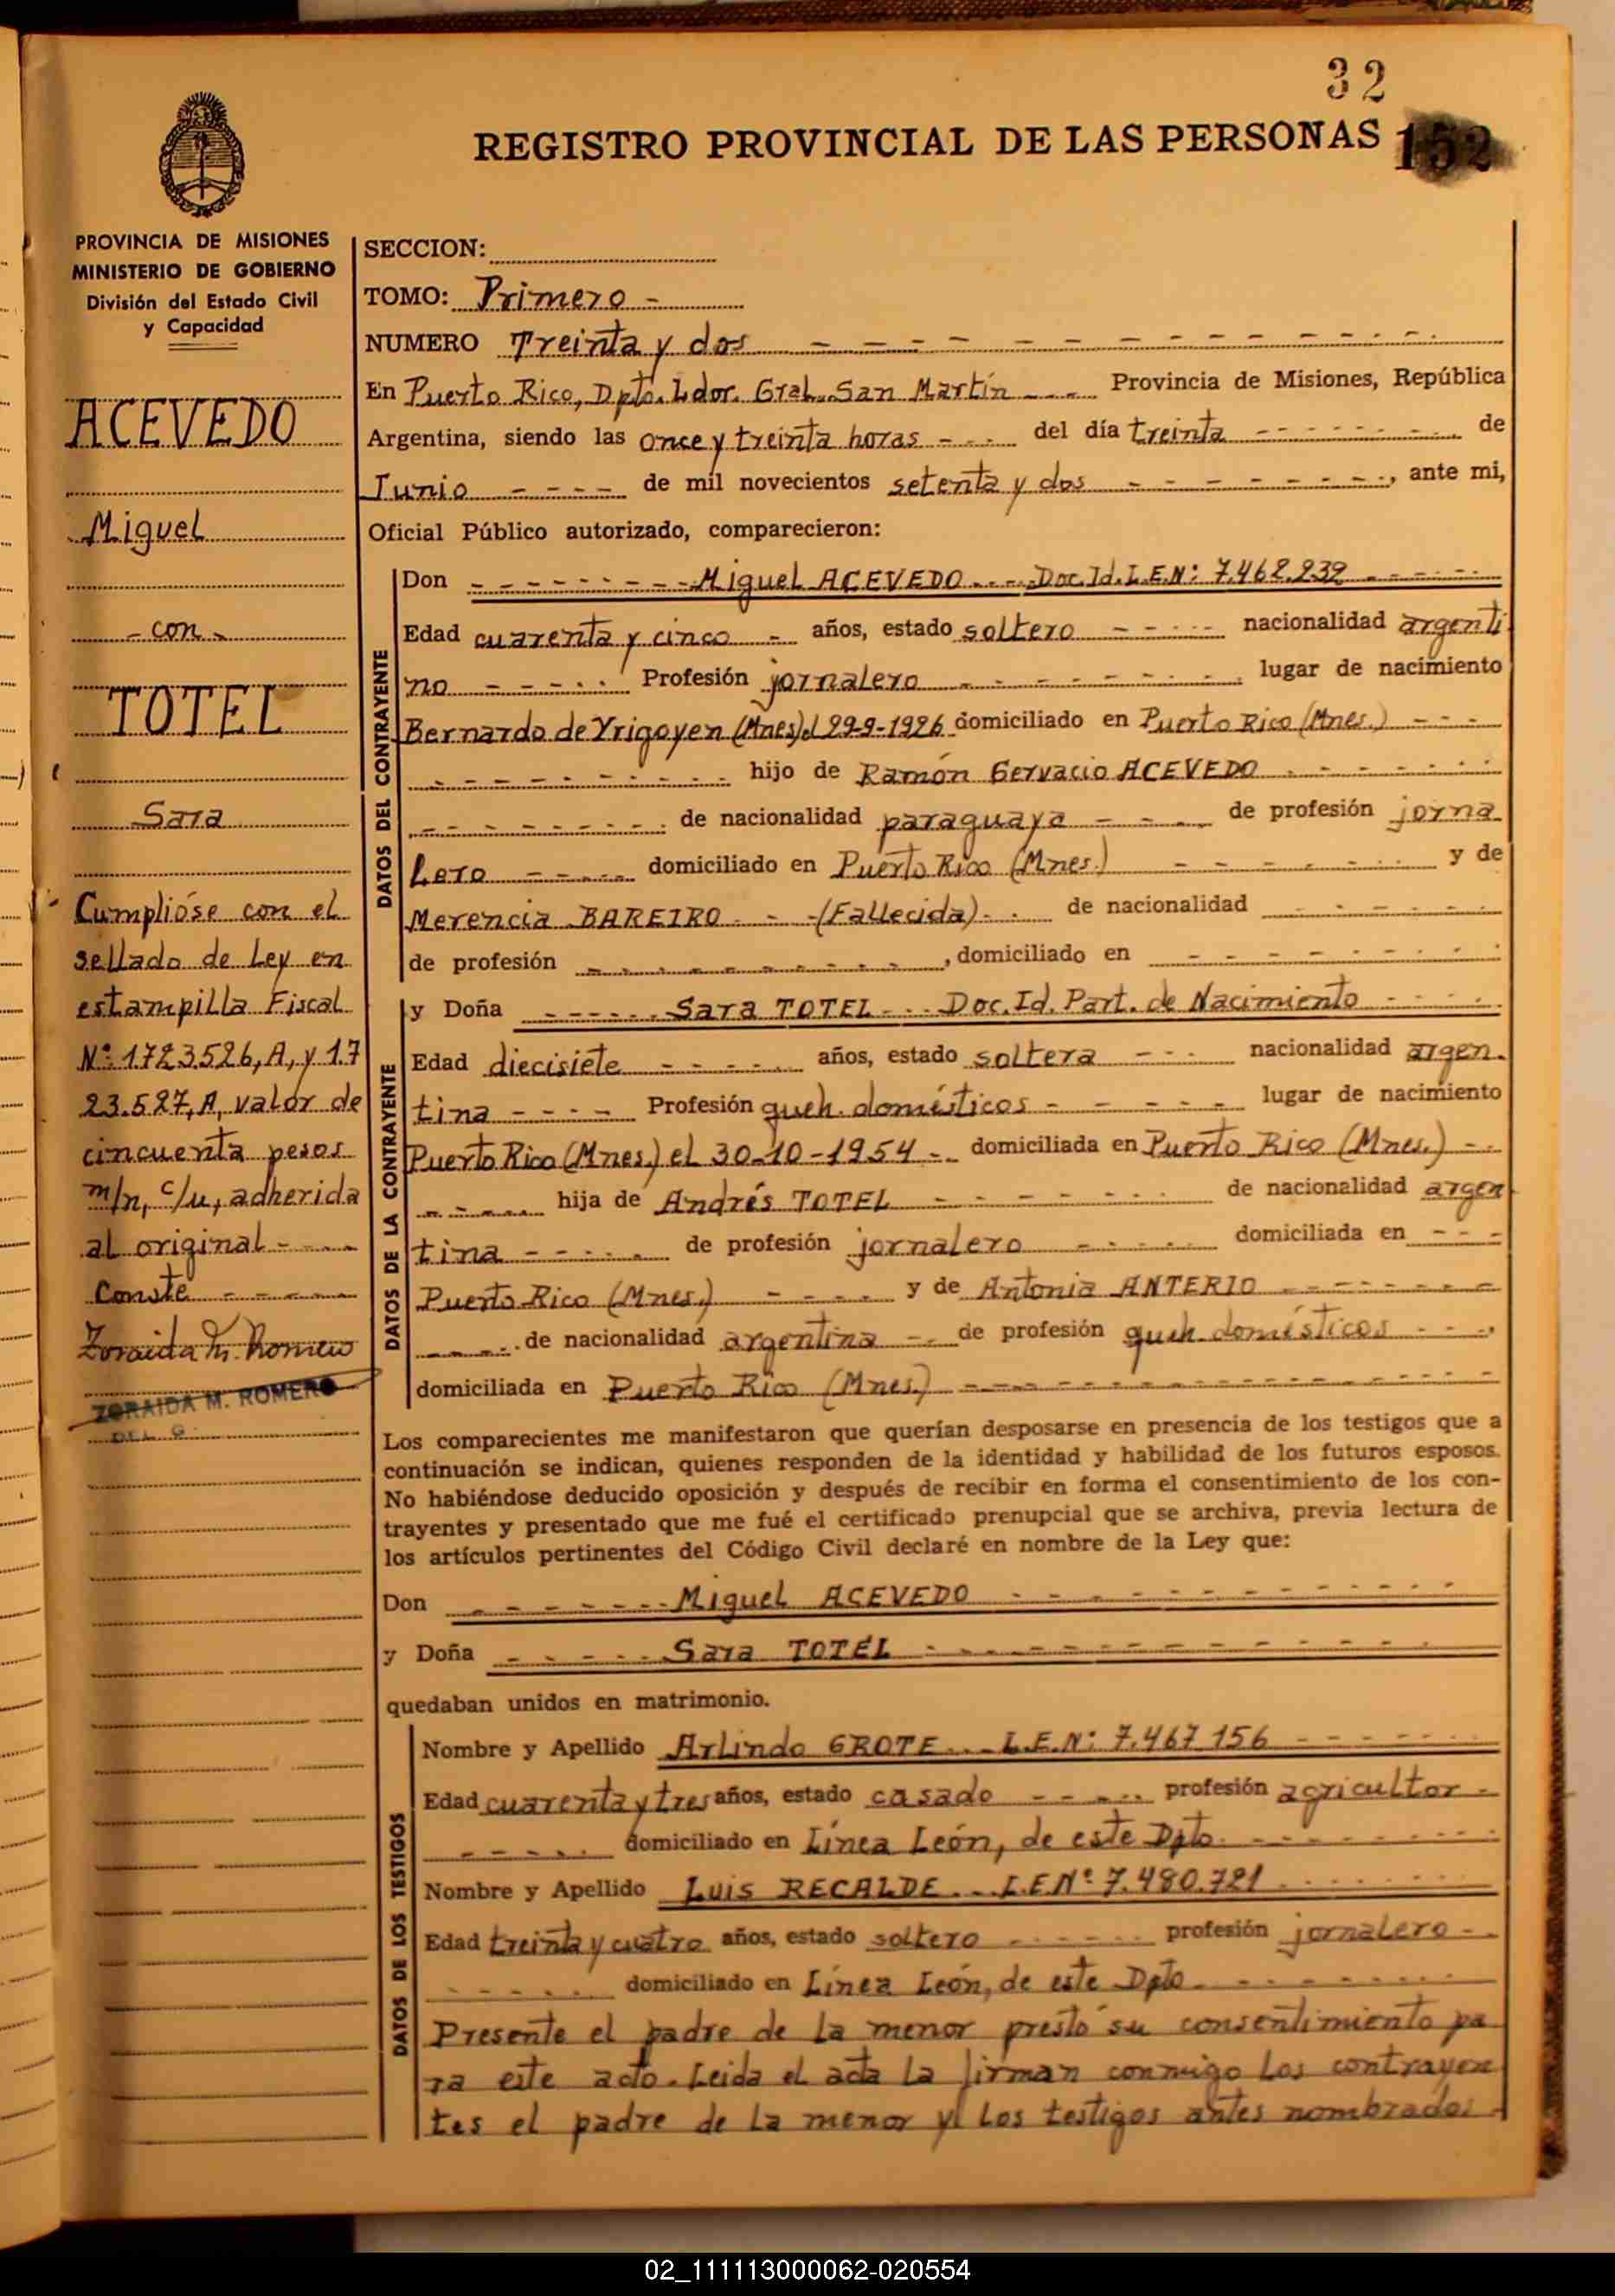 32
REGISTRO PROVINCIAL DE LAS PERSONAS 152
PROVINCIA DE MISIONES
MINISTERIO DE GOBIERNO
División del Estado Civil
y Capacidad
ACEVEDO
Miguel
- con -
TOTEL
Sara
Cumplióse con el
sellado de Ley en
estampilla Fiscal
Nº: 1723.526, A, y 1.7
23.527, A, valor de
cincuenta pesos
m/n, c/u, adherida
al original - - - -
Conste - - - - -
Zoraida M. Romero
ZORAIDA M. ROMERO
DEL G
SECCION:
TOMO: Primero -
NUMERO Treinta y dos - - - - - - - - - - -
En Puerto Rico, Dpto. Ldor. Gral. San Martín - - - Provincia de Misiones, República
Argentina, siendo las once y treinta horas - - - del día treinta - - - - - - - - de
Junio - - - - de mil novecientos setenta y dos - - - - - - - -, ante mi,
Oficial Público autorizado, comparecieron:
DATOS DEL CONTRAYENTE
Don - - - - - - - - - Miguel ACEVEDO - - - Doc. Id. L.E.N: 7.462.232 - - - - -
Edad cuarenta y cinco - años, estado soltero - - - - - nacionalidad argenti
no - - - - - Profesión jornalero - - - - - - - - lugar de nacimiento
Bernardo de Yrigoyen (Mnes) el 29-9-1926 domiciliado en Puerto Rico (Mnes.) - - -
- - - - - - - - - hijo de Ramón Gervacio ACEVEDO - - - - - - -
- - - - - - - - - de nacionalidad paraguaya - - - - de profesión jorna
lero - - - - - domiciliado en Puerto Rico (Mnes.) - - - - - - - y de
Merencia BAREIRO - - (Fallecida) - - de nacionalidad - - - - - -
de profesión - - - - - - - - - -, domiciliado en - - - - - - - -
DATOS DE LA CONTRAYENTE
y Doña - - - - - - Sara TOTEL - - - Doc. Id. Part. de Nacimiento - - - -
Edad diecisiete - - - - - años, estado soltera - - - nacionalidad argen.
tina - - - - Profesión queh. domésticos - - - - - - lugar de nacimiento
Puerto Rico (Mnes.) el 30-10-1954 - - domiciliada en Puerto Rico (Mnes.) - -
- - - - - hija de Andrés TOTEL - - - - - - - - de nacionalidad argen
tina - - - - - de profesión jornalero - - - - - domiciliada en - - -
Puerto Rico (Mnes.) - - - - - y de Antonia ANTERIO - - - - - - -
- - - - - de nacionalidad argentina - - de profesión queh. domésticos - - -,
domiciliada en Puerto Rico (Mnes.) - - - - - - - - - - - - - - -
Los comparecientes me manifestaron que querían desposarse en presencia de los testigos que a
continuación se indican, quienes responden de la identidad y habilidad de los futuros esposos.
No habiéndose deducido oposición y después de recibir en forma el consentimiento de los con-
trayentes y presentado que me fué el certificado prenupcial que se archiva, previa lectura de
los artículos pertinentes del Código Civil declaré en nombre de la Ley que:
Don - - - - - - - Miguel ACEVEDO - - - - - - - - - - -
y Doña - - - - - - Sara TOTEL - - - - - - - - - - - -
quedaban unidos en matrimonio.
DATOS DE LOS TESTIGOS
Nombre y Apellido Arlindo GROTE - - - L.E.N: 7.467 156 - - - - - -
Edad cuarenta y tres años, estado casado - - - - - profesión agricultor -
- - - - - - domiciliado en Línea León, de este Dpto. - - - - - - -
Nombre y Apellido Luis RECALDE - - - L.E.Nº 7.480.721 - - - - - -
Edad treinta y cuatro años, estado soltero - - - - - - profesión jornalero - -
- - - - - - domiciliado en Línea León, de este Dpto. - - - - - - - -
Presente el padre de la menor prestó su consentimiento pa
ra este acto. Leida el acta la firman conmigo los contrayen
tes el padre de la menor y los testigos antes nombrados -
02_111113000062-020554